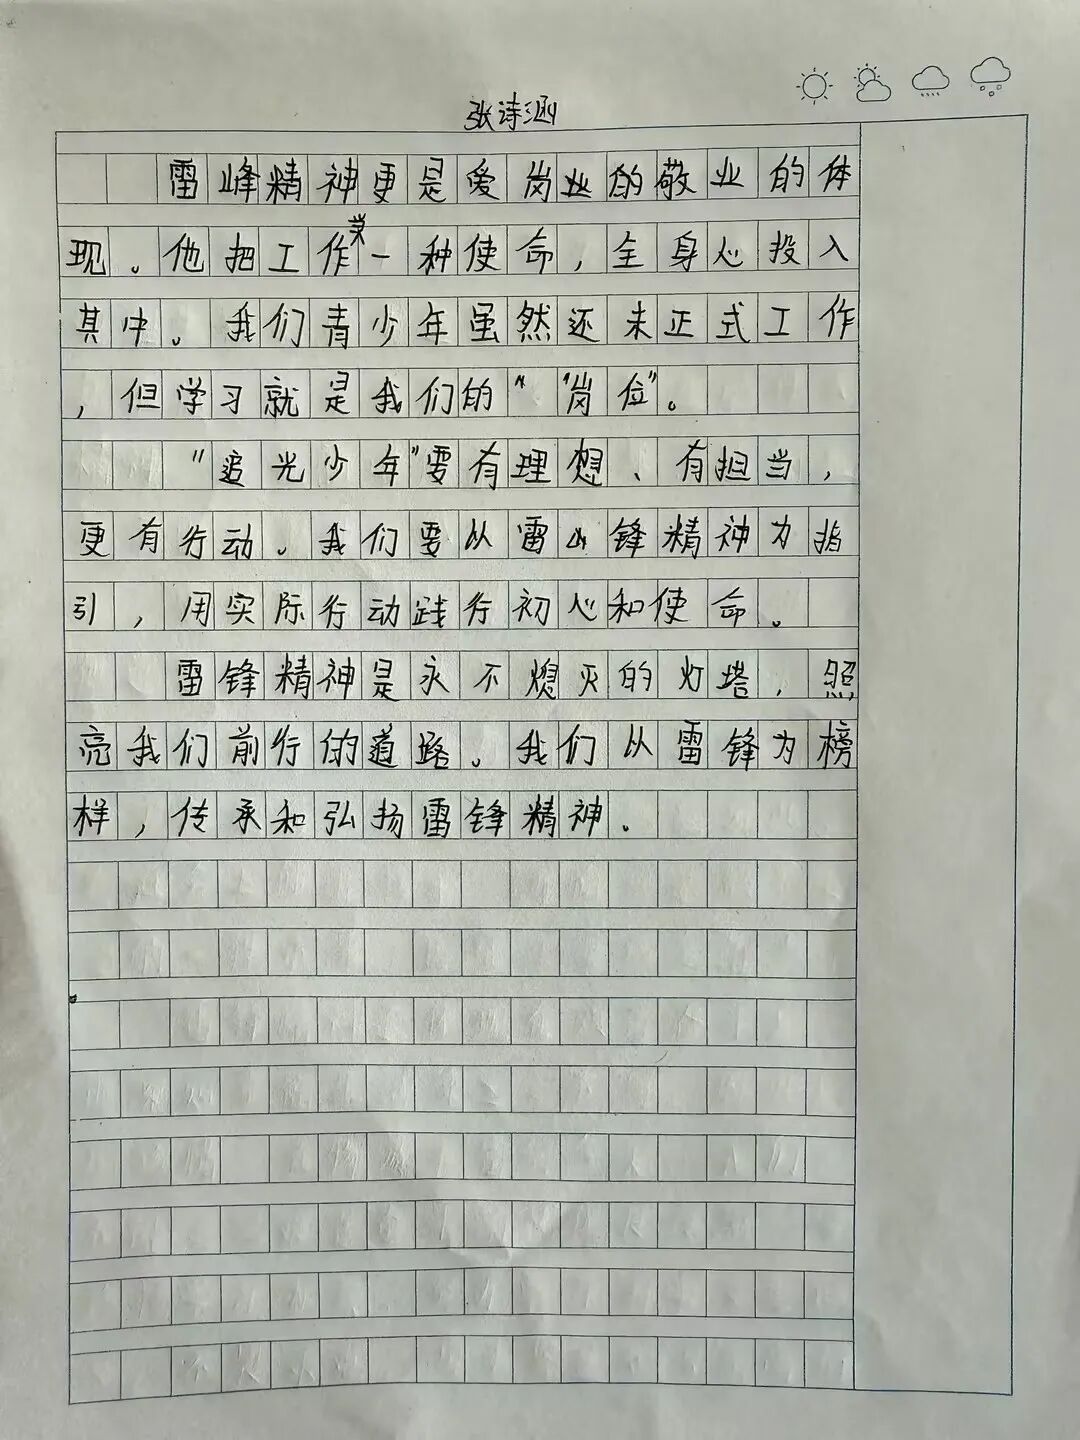 张诗涵
雷峰精神更是爱岗业的敬业的体
现。他把工作当一种使命，全身心投入
其中。我们青少年虽然还未正式工作
，但学习就是我们的“ “岗位”。
”追光少年”要有理想、有担当，
更有行动。我们要以雷山锋精神为指
引，用实际行动践行初心和使命。
雷锋精神是永不熄灭的灯塔，照
亮我们前行的道路。我们以雷锋为榜
样，传承和弘扬雷锋精神.